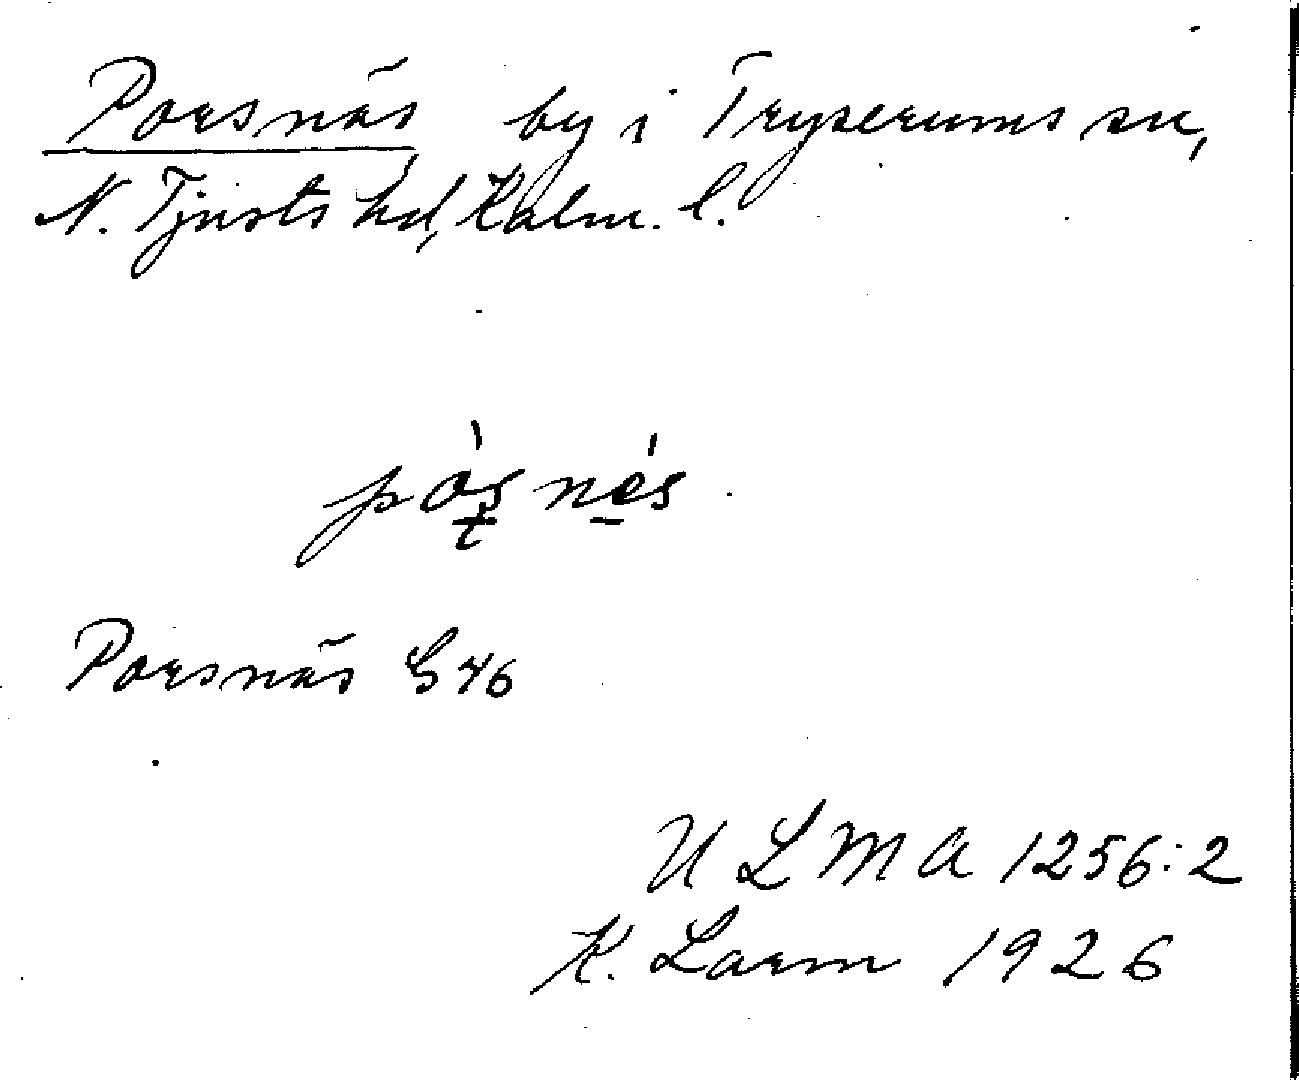 Porsnäs by i Tryserums sn,
N. Tjusts hd, Kalm. l.
Porsnäs G 46
ULMA 1256:2
K. Larm 1926